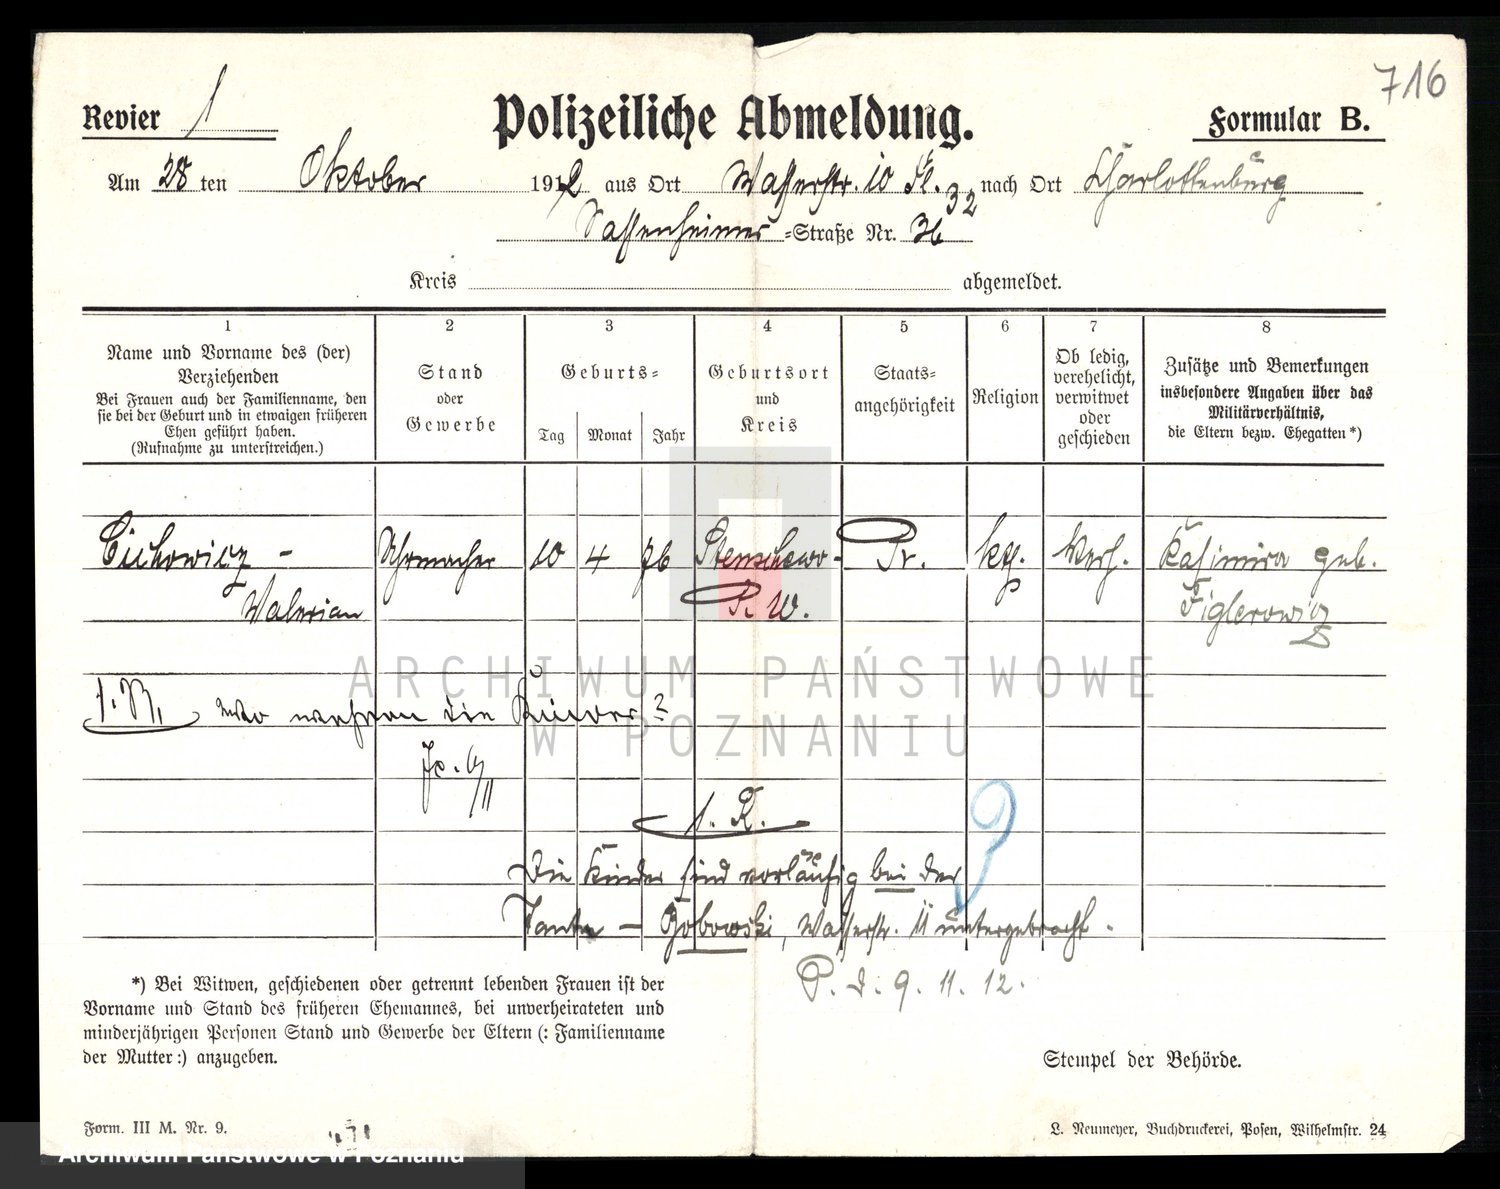 716
Revier 1 Polizeiliche Abmeldung. Formular B.
Am 28 ten Oktober 1912 aus Ort Wasserstr. 10 nach Ort Charlottenburg
32
Sassenheimer =Straße Nr. 36
Kreis abgemeldet.
1 2 3 4 5 6 7 8
Name und Vorname des (der)
Verziehenden
Bei Frauen auch der Familienname, den
sie bei der Geburt und in etwaigen früheren
Ehen geführt haben.
(Rufnahme zu unterstreichen.)
Stand
oder
Gewerbe
Geburts=
Tag Monat Jahr
Geburtsort
und
Kreis
Staats=
angehörigkeit
Religion
Ob ledig,
verehelicht,
verwitwet
oder
geschieden
Zusätze und Bemerkungen
insbesondere Angaben über das
Militärverhältnis,
die Eltern bezw. Ehegatten*)
Cichowicz - Uhrmacher 10 4 76 Stenschewo - Pr. kth. Verh. Kasimira geb.
Valerian P. W. Figlerowicz
ARCHIWUM PAŃSTWOWE
W POZNANIU
1. R. wo wohnen die Kinder?
1. R.
Die Kinder sind vorläufig bei der
Tante - Gobowski, Wasserstr. 11 untergebracht.
P. d. 9. 11. 12.
*) Bei Witwen, geschiedenen oder getrennt lebenden Frauen ist der
Vorname und Stand des früheren Ehemannes, bei unverheirateten und
minderjährigen Personen Stand und Gewerbe der Eltern (: Familienname
der Mutter:) anzugeben.
Stempel der Behörde.
Form. III M. Nr. 9.
L. Neumeyer, Buchdruckerei, Posen, Wilhelmstr. 24
Archiwum Państwowe w Poznaniu